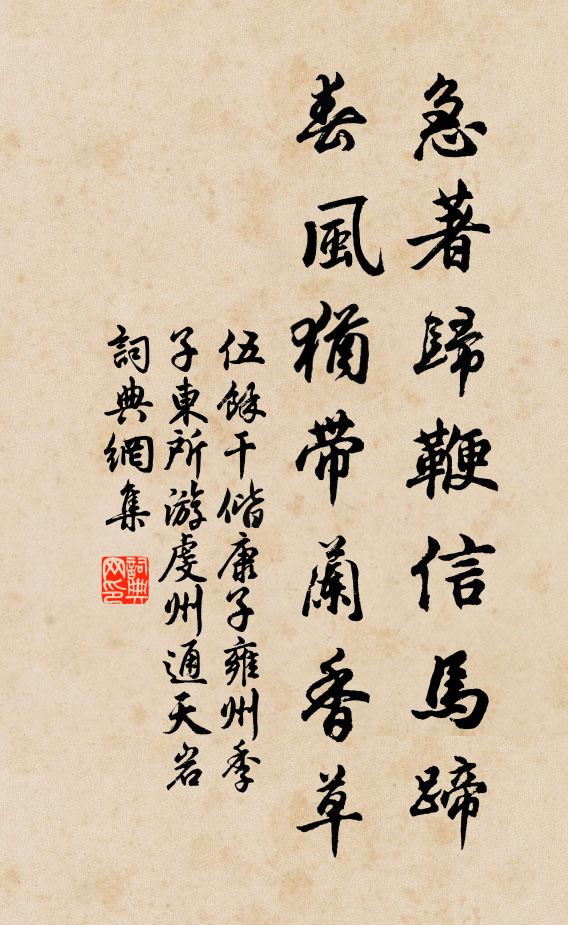 急著歸鞭信馬蹄
春風猶帶蘭香草
伍餘干偕康子雍州季
子東所游虔州通天岩
詞典網集
詞典
网印